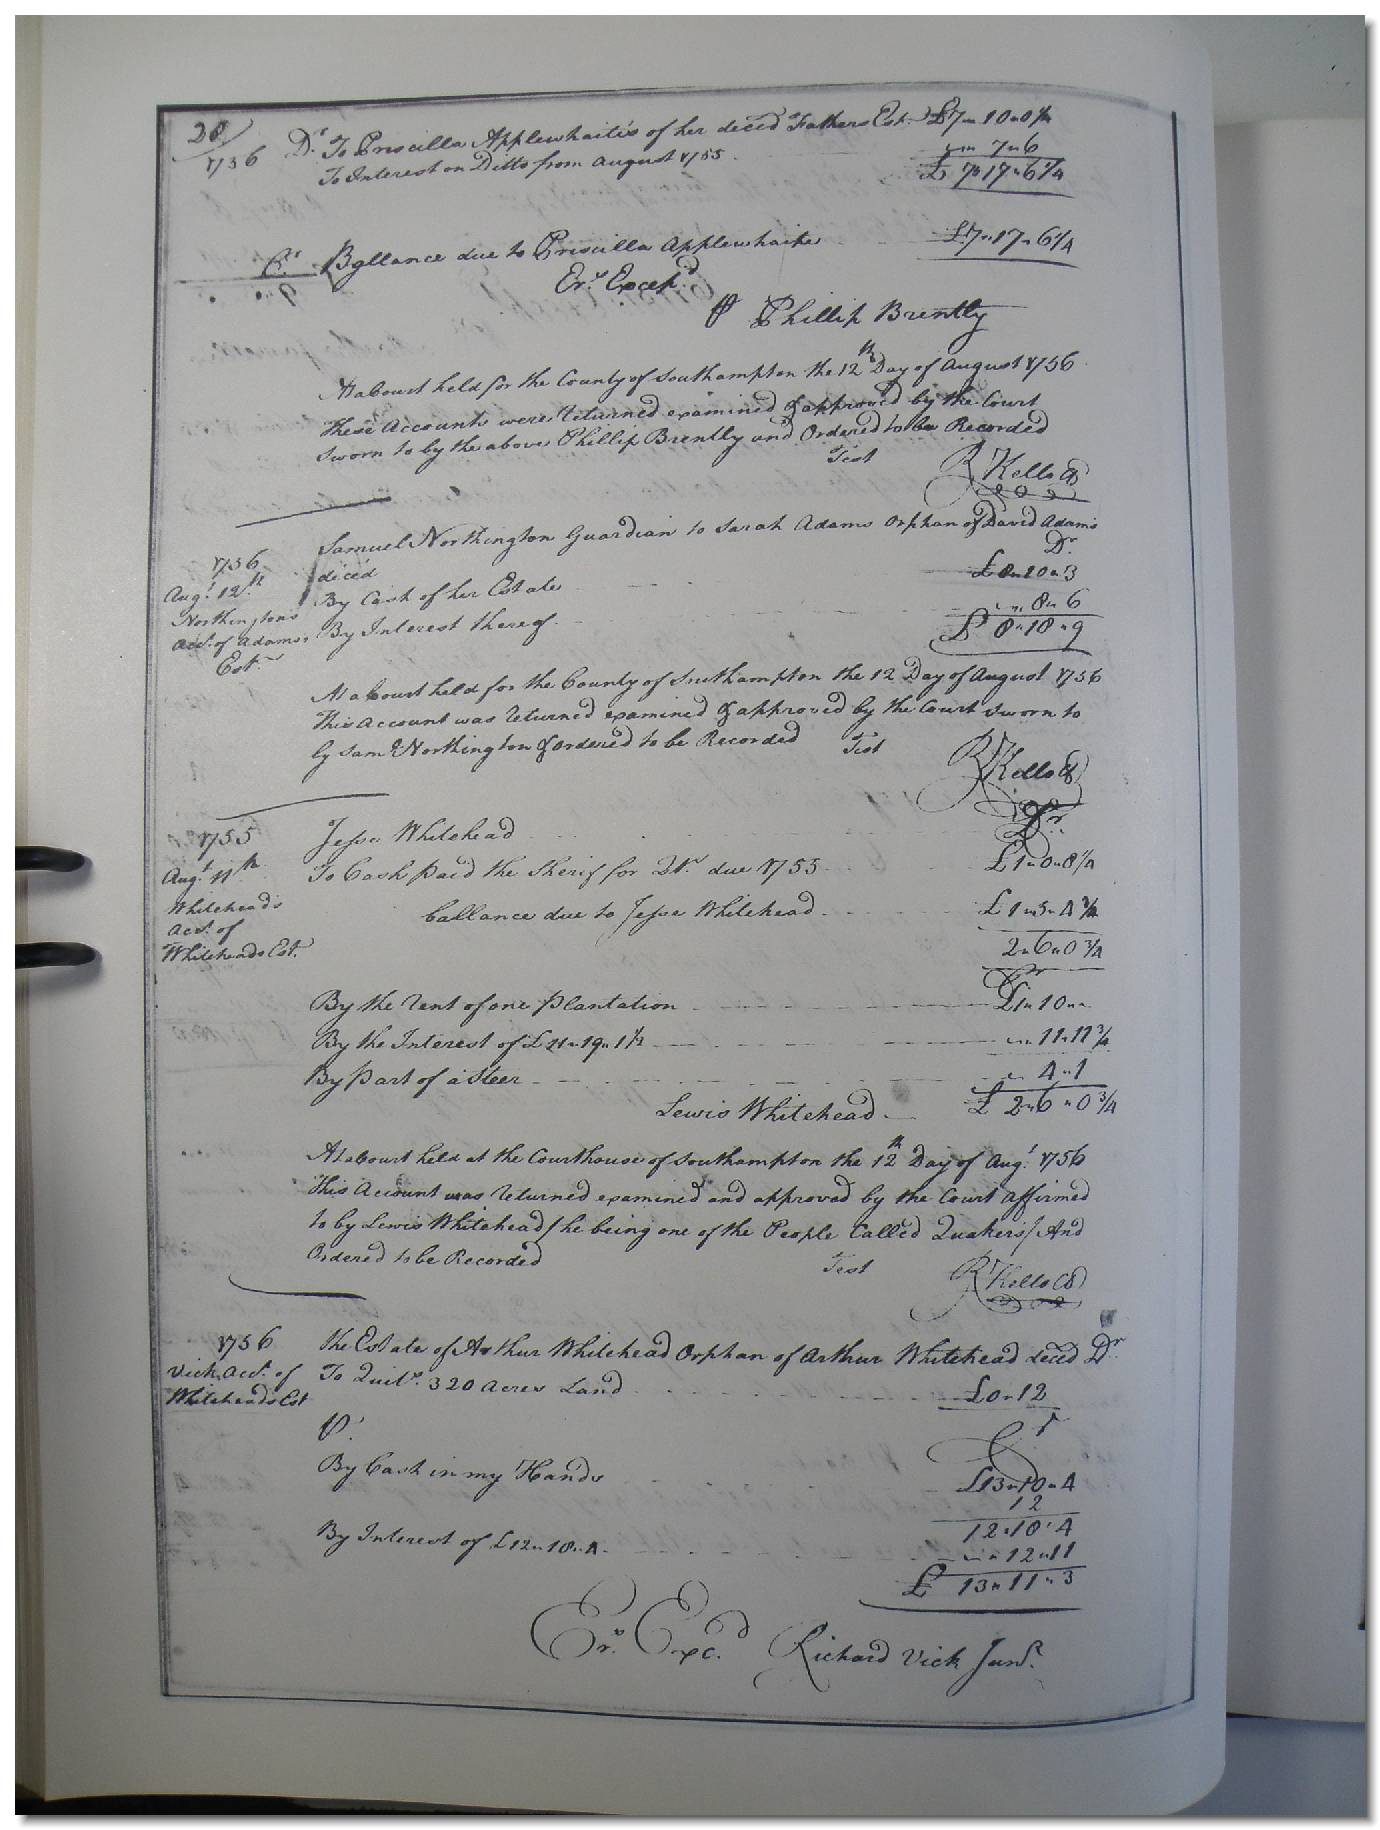 28
1756 Dr. To Priscilla Applewhaites of her deced Fathers Est. £7 " 10 " 0¼
To Interest on Ditto from August 1755 " 7 " 6
£ 7 " 17 " 6¼
Cr. Ballance due to Priscilla Applewhaite £7 " 17 " 6¼
Ers. Excepd.
P Phillip Brently
At a Court held for the County of Southampton the 12th Day of August 1756
These Accounts were returned examined & approved by the Court
sworn to by the above Phillip Brently and Ordered to be Recorded
Test R Kello Cl
Samuel Northington Guardian to Sarah Adams Orphan of David Adams
1756 deced Dr.
Augt. 12th. By Cash of her Estate £8 " 10 " 3
Northingtons By Interest thereof " 8 " 6
Acct. of Adams's £ 8 " 18 " 9
Est.
At a Court held for the County of Southampton the 12 Day of August 1756
This Account was returned examined & approved by the Court sworn to
by Saml. Northington & ordered to be Recorded Test
R Kello Cl
1755 Jesse Whitehead Dr.
Augt. 11th To Cash paid the Sherif for Qts. due 1755 £1 " 0 " 8¼
Whiteheads
Acct. of ballance due to Jesse Whitehead £1 " 5 " 4¾
Whiteheads Est. 2 " 6 " 0¾
Cr
By the rent of one plantation £1 " 10 "
By the Interest of £11 " 19 " 1½ " 11 " 11¾
By part of a Steer " 4 " 1
Lewis Whitehead £ 2 " 6 " 0¾
At a Court held at the Courthouse of Southampton the 12th Day of Augt. 1756
This Account was returned examined and approved by the Court affirmed
to by Lewis Whitehead / he being one of the People Called Quakers / And
Ordered to be Recorded Test R Kello Cl
1756 The Estate of Arthur Whitehead Orphan of Arthur Whitehead deced Dr.
Vick Acct. of To Quits. 320 Acres Land £0 " 12
Whiteheads Est
P. Cr
By Cash in my Hands £13 " 10 " 4
12
12 " 18 " 4
By Interest of £12 " 18 " 4 " 12 " 11
£ 13 " 11 " 3
Ers. Excd. Richard Vick Junr.